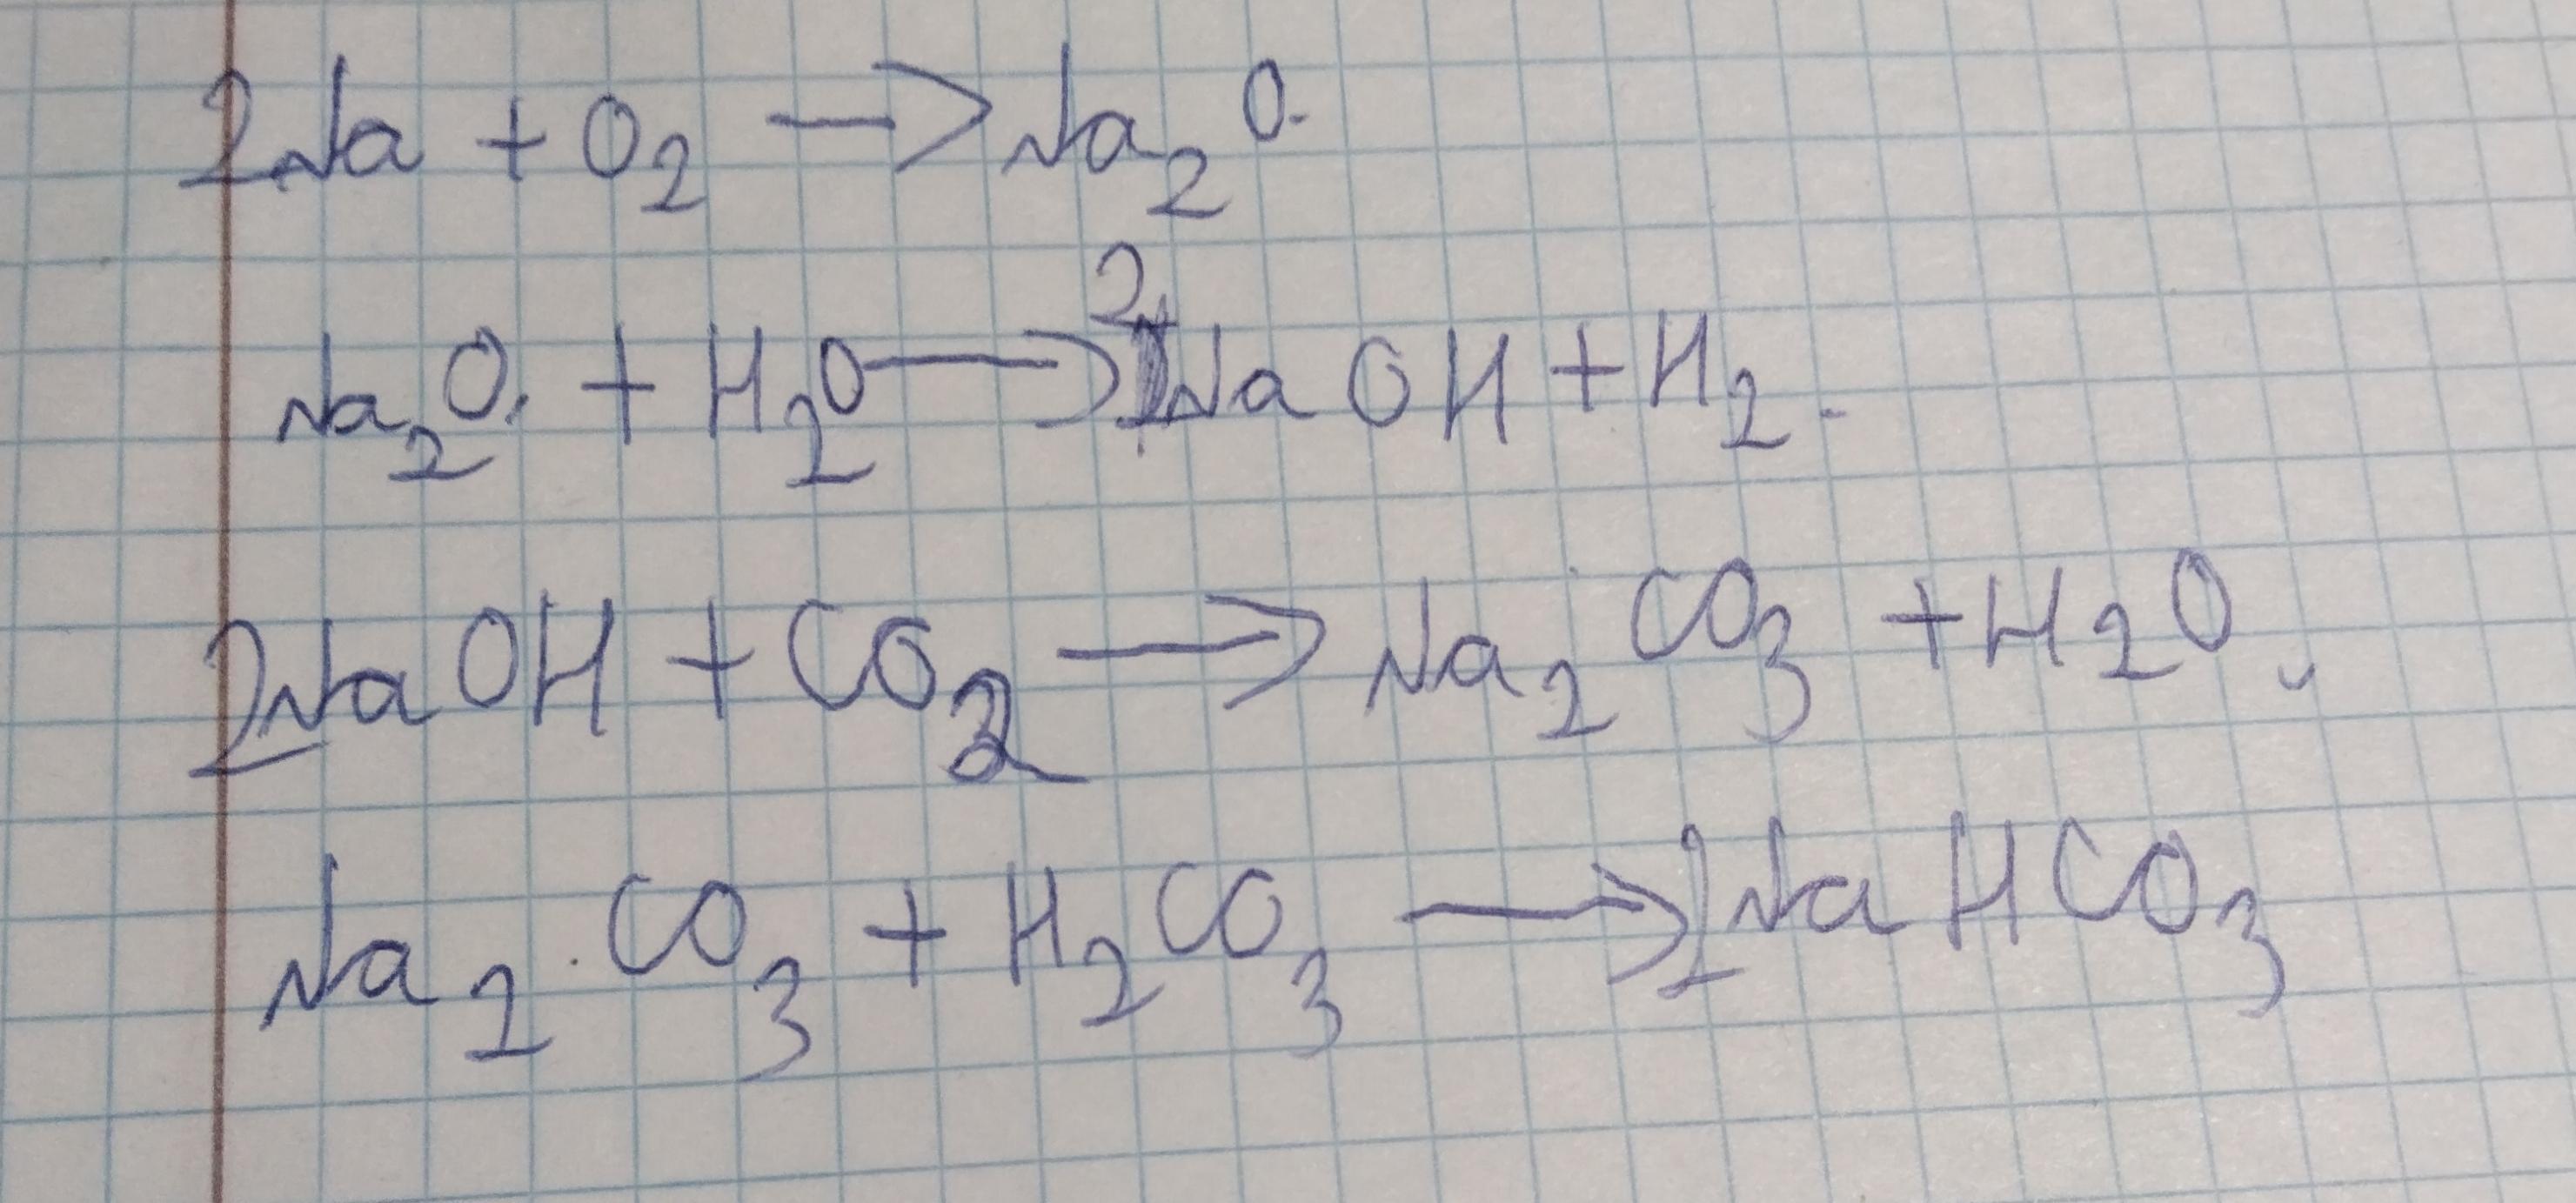 2Na + O₂ → Na₂O.
Na₂O. + H₂O → 2NaOH + H₂.
2NaOH + CO₂ → Na₂CO₃ + H₂O.
Na₂CO₃ + H₂CO₃ → 2NaHCO₃